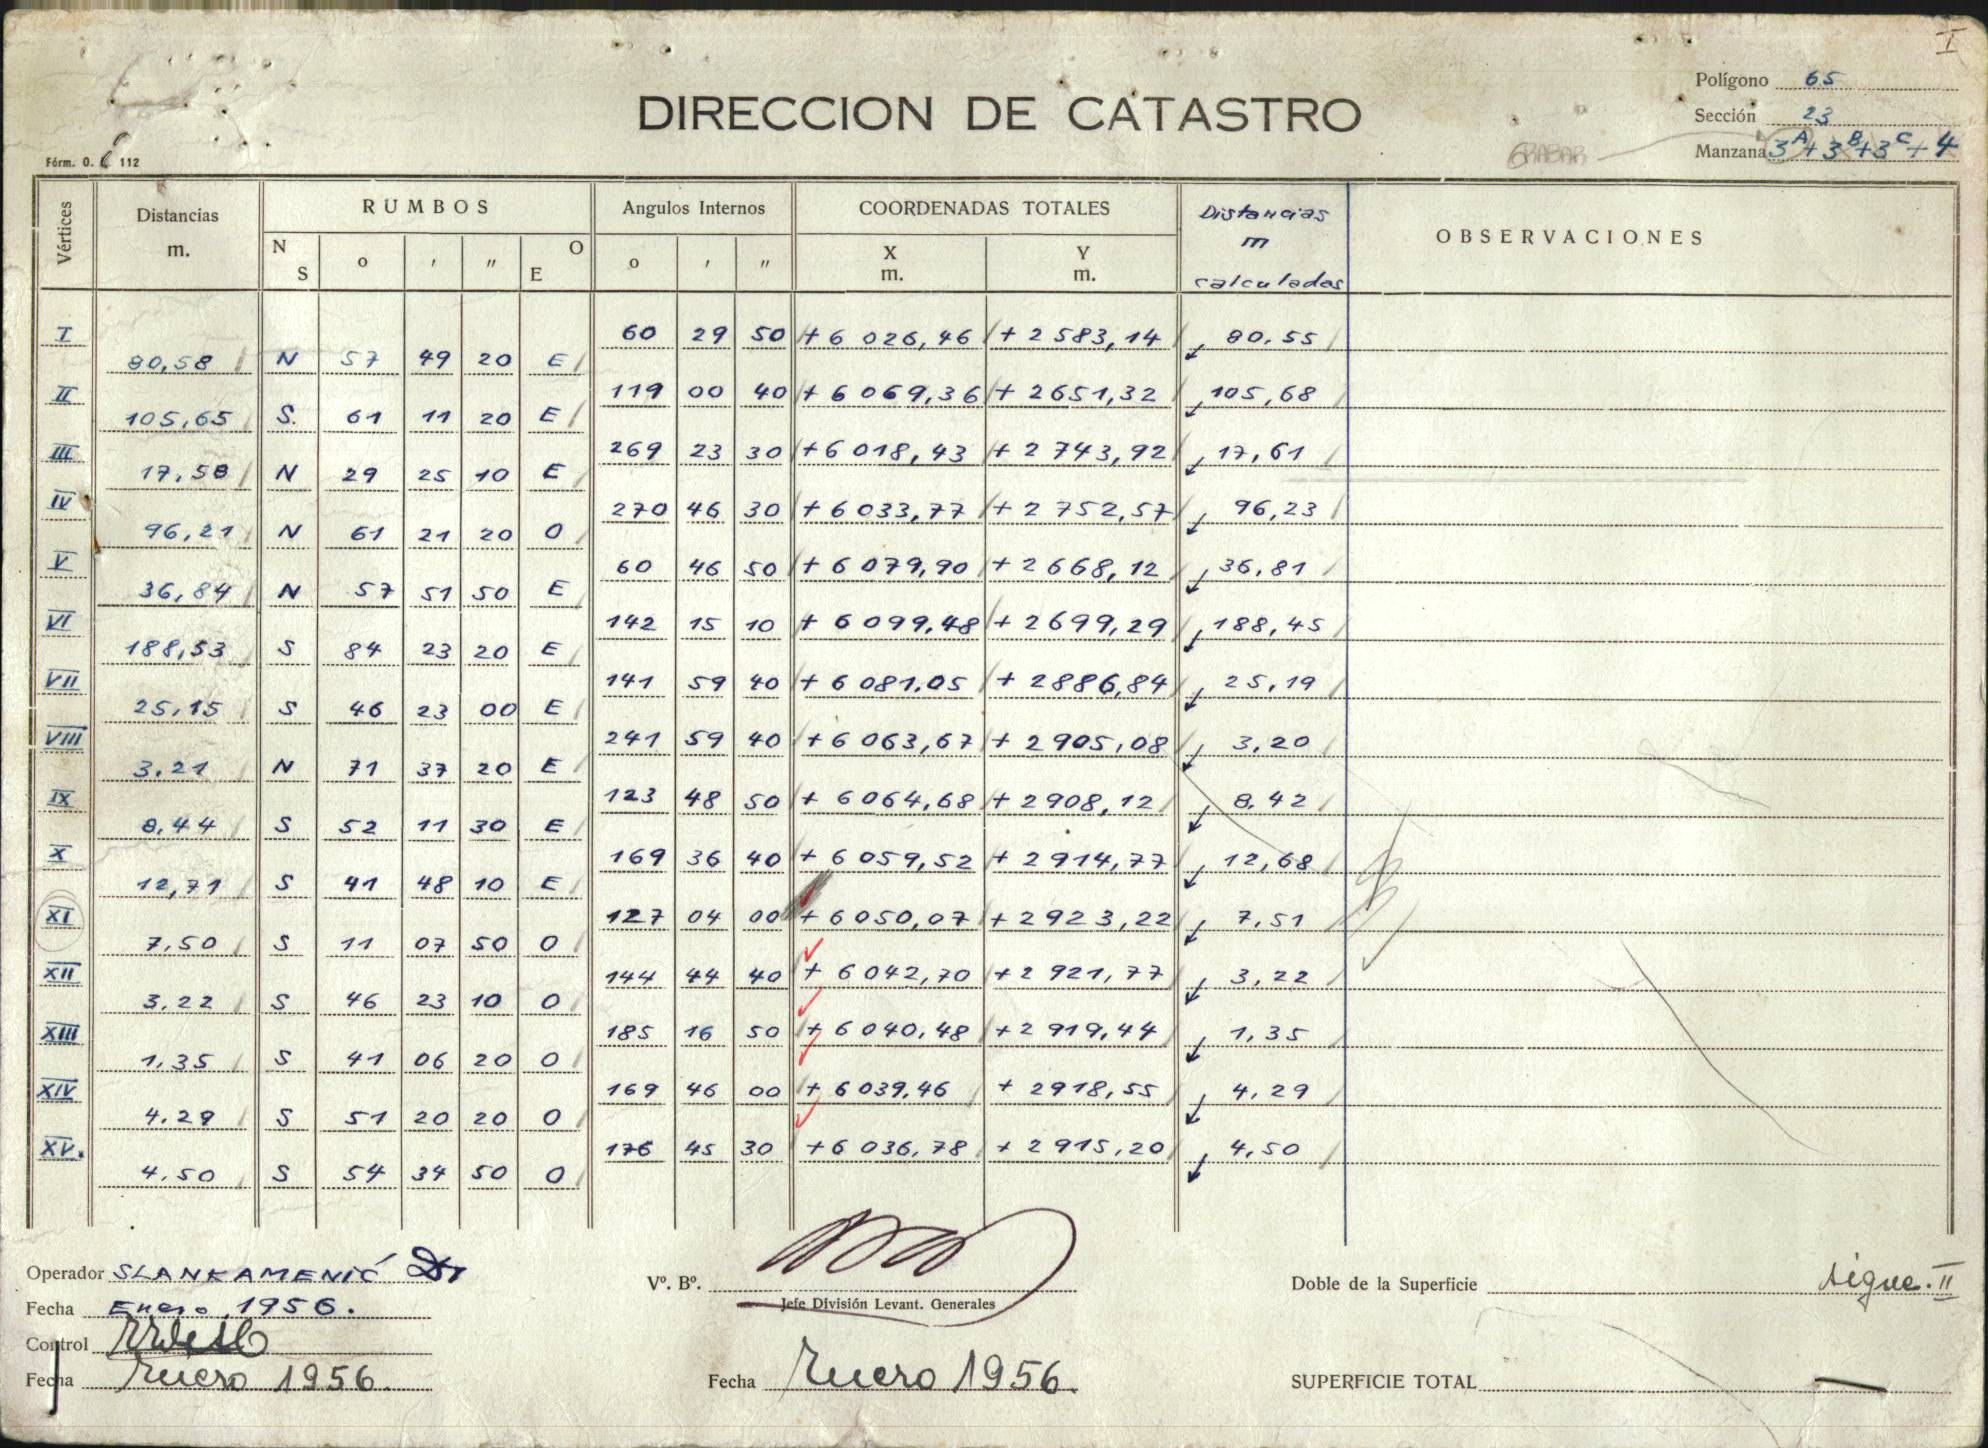 I
Polígono 65
DIRECCION DE CATASTRO
Sección 23
GRABAR
Manzana 3A+3B+3C+4
Fórm. O. C 112
Vértices
Distancias m.
RUMBOS
Angulos Internos
COORDENADAS TOTALES
Distancias m calculadas
OBSERVACIONES
N S o ' " O E
o ' "
X m.
Y m.
I 60 29 50 +6 026,46 +2 583,14 80,55
80,58 N 57 49 20 E
II 119 00 40 +6 069,36 +2651,32 105,68
105,65 S. 61 11 20 E
III 269 23 30 +6 018,43 +2 743,92 17,61
17,58 N 29 25 10 E
IV 270 46 30 +6 033,77 +2 752,57 96,23
96,21 N 61 21 20 O
V 60 46 50 +6 079,90 +2668,12 36,81
36,84 N 57 51 50 E
VI 142 15 10 +6 099,48 +2699,29 188,45
188,53 S 84 23 20 E
VII 141 59 40 +6 081,05 +2886,84 25,19
25,15 S 46 23 00 E
VIII 241 59 40 +6 063,67 +2905,08 3,20
3,21 N 71 37 20 E
IX 123 48 50 +6064,68 +2908,12 8,42
8,44 S 52 11 30 E
X 169 36 40 +6 059,52 +2914,77 12,68
12,71 S 41 48 10 E
XI 127 04 00 +6050,07 +2923,22 7,51
7,50 S 11 07 50 O
XII 144 44 40 +6042,70 +2 921,77 3,22
3,22 S 46 23 10 O
XIII 185 16 50 +6 040,48 +2 919,44 1,35
1,35 S 41 06 20 O
XIV 169 46 00 +6039,46 +2918,55 4,29
4,29 S 51 20 20 O
XV. 176 45 30 +6 036,78 +2915,20 4,50
4,50 S 54 34 50 O
Operador SLANKAMENIĆ
Vº. Bº.
Doble de la Superficie
sigue. II
Fecha Enero, 1956.
Jefe División Levant. Generales
Control
Fecha Enero 1956.
Fecha Enero 1956.
SUPERFICIE TOTAL —